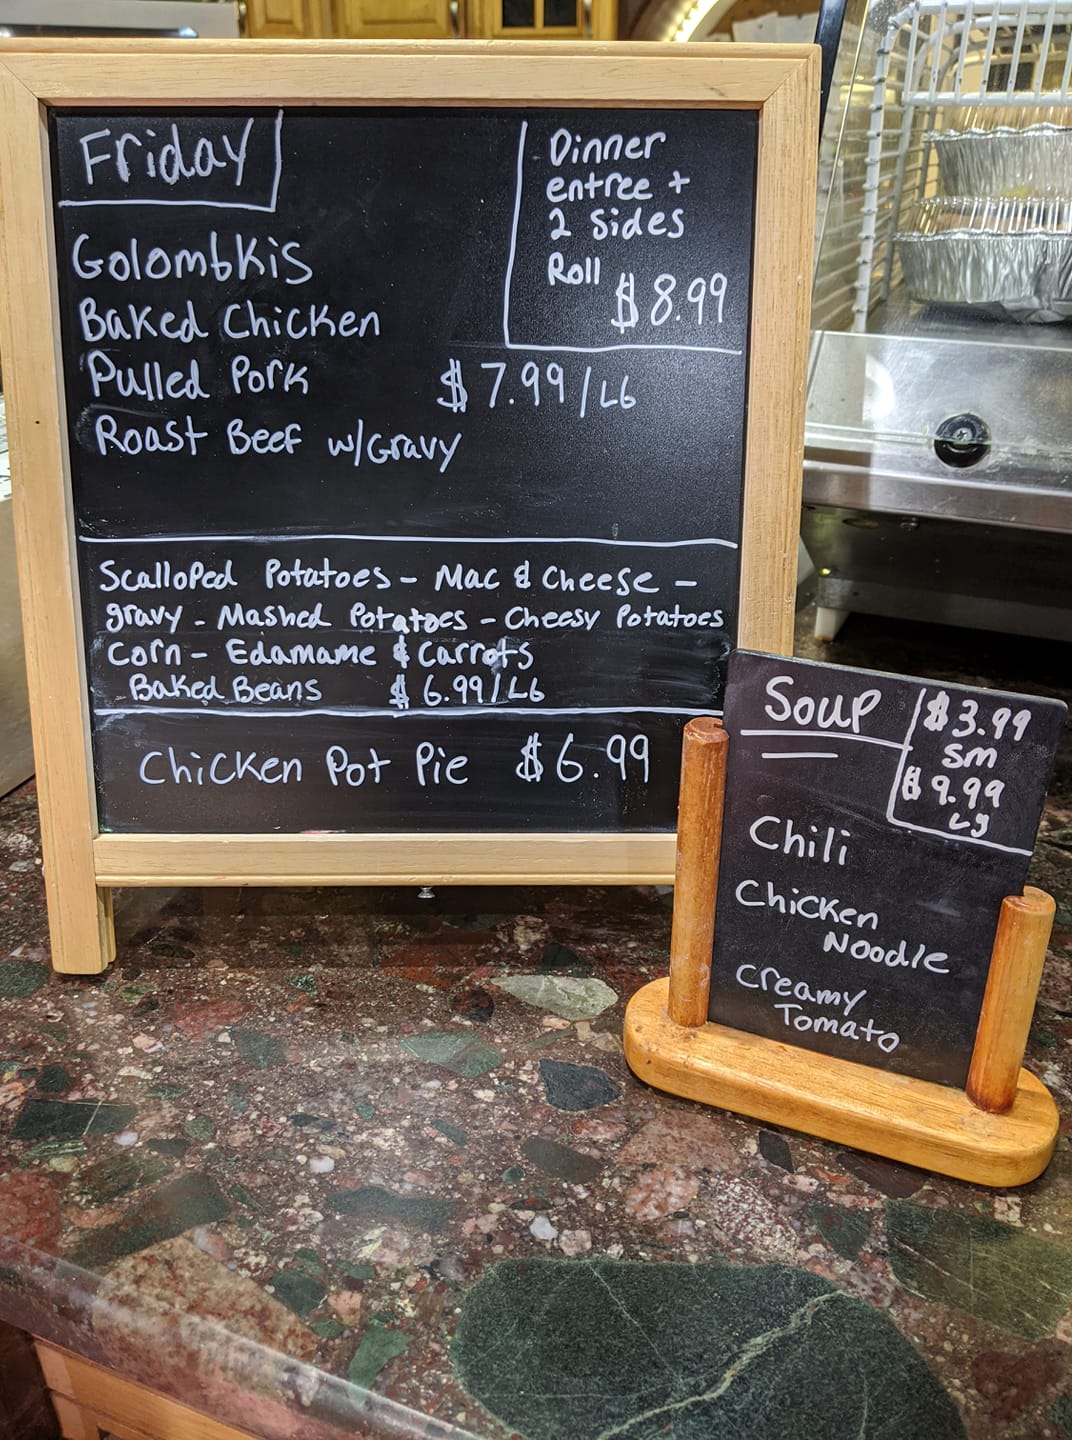 Friday
Dinner
entree +
2 Sides
Roll
$8.99
Golombkis
Baked Chicken
Pulled Pork $7.99/Lb
Roast Beef w/Gravy
Scalloped Potatoes - Mac & Cheese -
gravy - Mashed Potatoes - Cheesy Potatoes
Corn - Edamame & Carrots
Baked Beans $6.99/Lb
Chicken Pot Pie $6.99
Soup
$3.99
Sm
$9.99
Lg
Chili
Chicken
Noodle
Creamy
Tomato